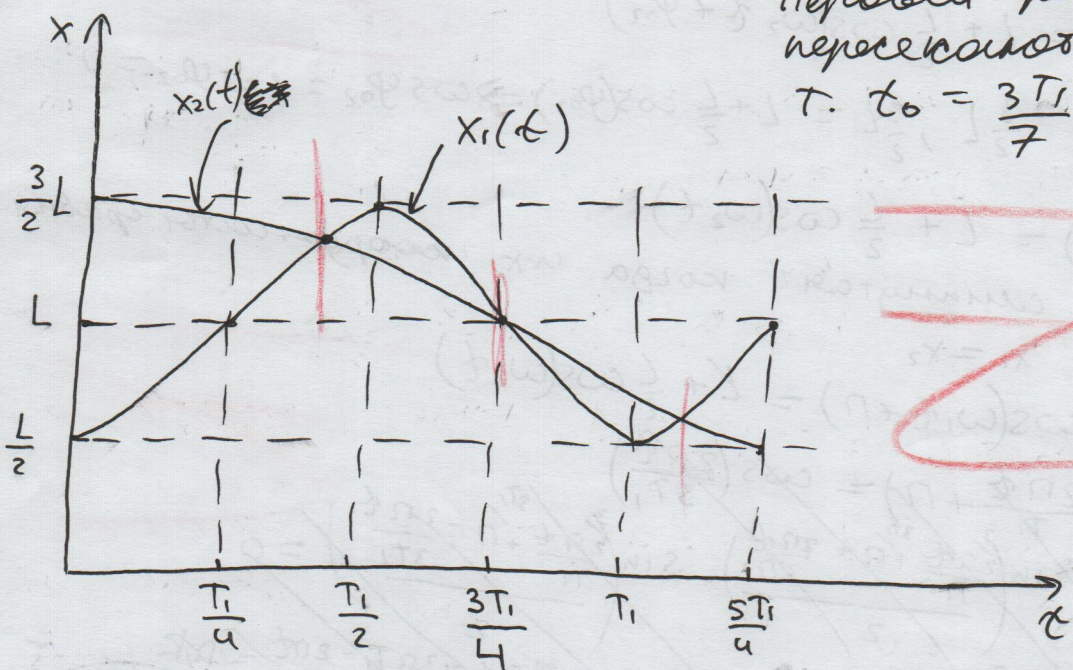 пересекают
т. t₀ = 3T₁/7
x
x₂(t)
x₁(t)
3/2 L
L
L/2
T₁/4
T₁/2
3T₁/4
T₁
5T₁/4
t